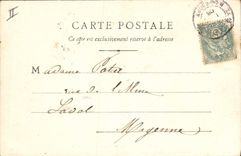 II
CARTE POSTALE
Ce côté est exclusivement réservé à l'adresse
M adame
rue de
Laval
Mayenne